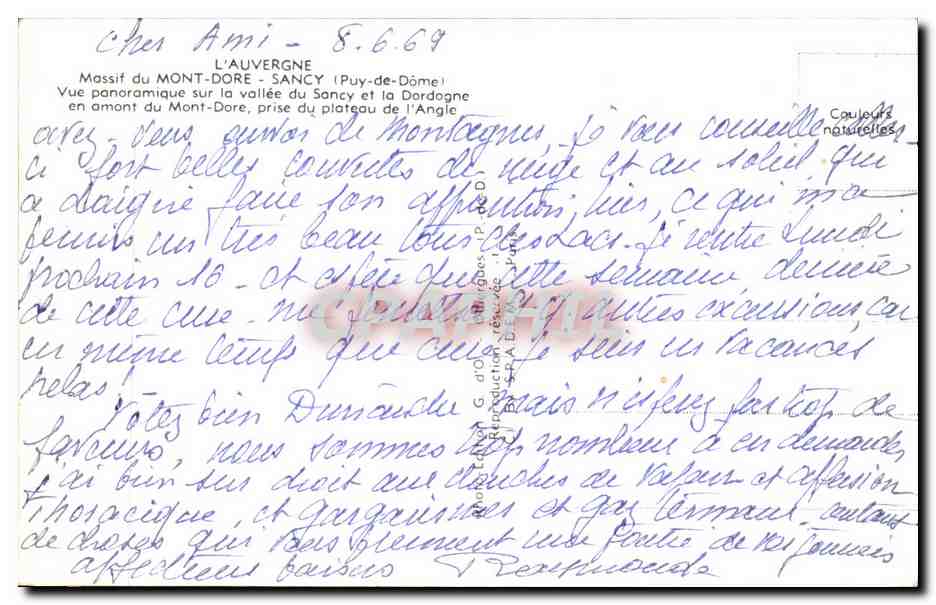 Cher Ami - 8.6.69
L'AUVERGNE
Massif du MONT-DORE - SANCY (Puy-de-Dôme)
Vue panoramique sur la vallée du Sancy et la Dordogne
en amont du Mont-Dore, prise du plateau de l'Angle
Couleurs
naturelles
avez-vous envie de montagnes, je vous conseille celles-
ci fort belles couvertes de neige et au soleil qui
a daigné faire son apparition hier, ce qui m'a
permis un très beau tour des Lacs. Je rentre Lundi
prochain 16 - et espère que cette semaine dernière
de cette cure - me permettra d'autres excursions, car
en même temps que cure je suis en vacances
hélas!
Votez bien mais n'espérez pas trop de
faveurs, nous sommes trop nombreux à en demander
J'ai bien sur droit aux douches de vapeur et affusion
thoracique, et gargarismes et gaz thermaux - autant
de choses qui vous prennent une partie de vos journées
affectueux baisers Raymonde
CPAPHIL
Reproduction réservée